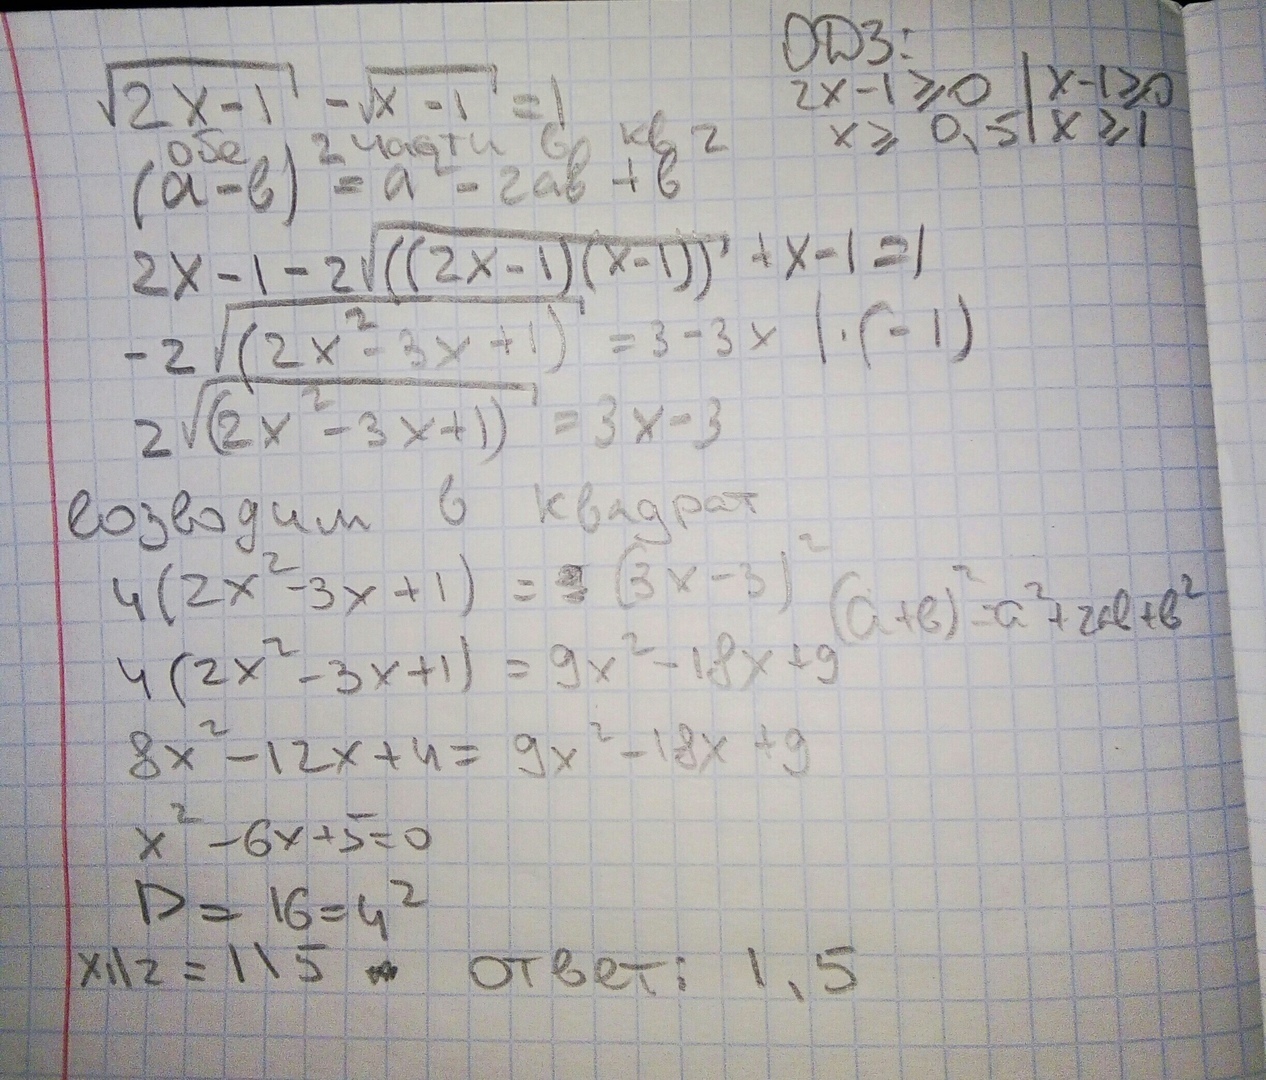 ОДЗ:
√2x-1 - √x-1 = 1
2x-1⩾0 | x-1⩾0
x⩾ 0,5 | x⩾1
обе части в кв
(a-b)² = a² - 2ab + b²
2x-1-2√((2x-1)(x-1)) + x-1 = 1
-2√(2x²-3x+1) = 3-3x |·(-1)
2√(2x²-3x+1) = 3x-3
возводим в квадрат
4(2x²-3x+1) = (3x-3)²
(a+b)²=a²+2ab+b²
4(2x²-3x+1) = 9x²-18x+9
8x²-12x+4= 9x²-18x+9
x²-6x+5=0
D= 16=4²
x1\2=1\5 ответ: 1,5